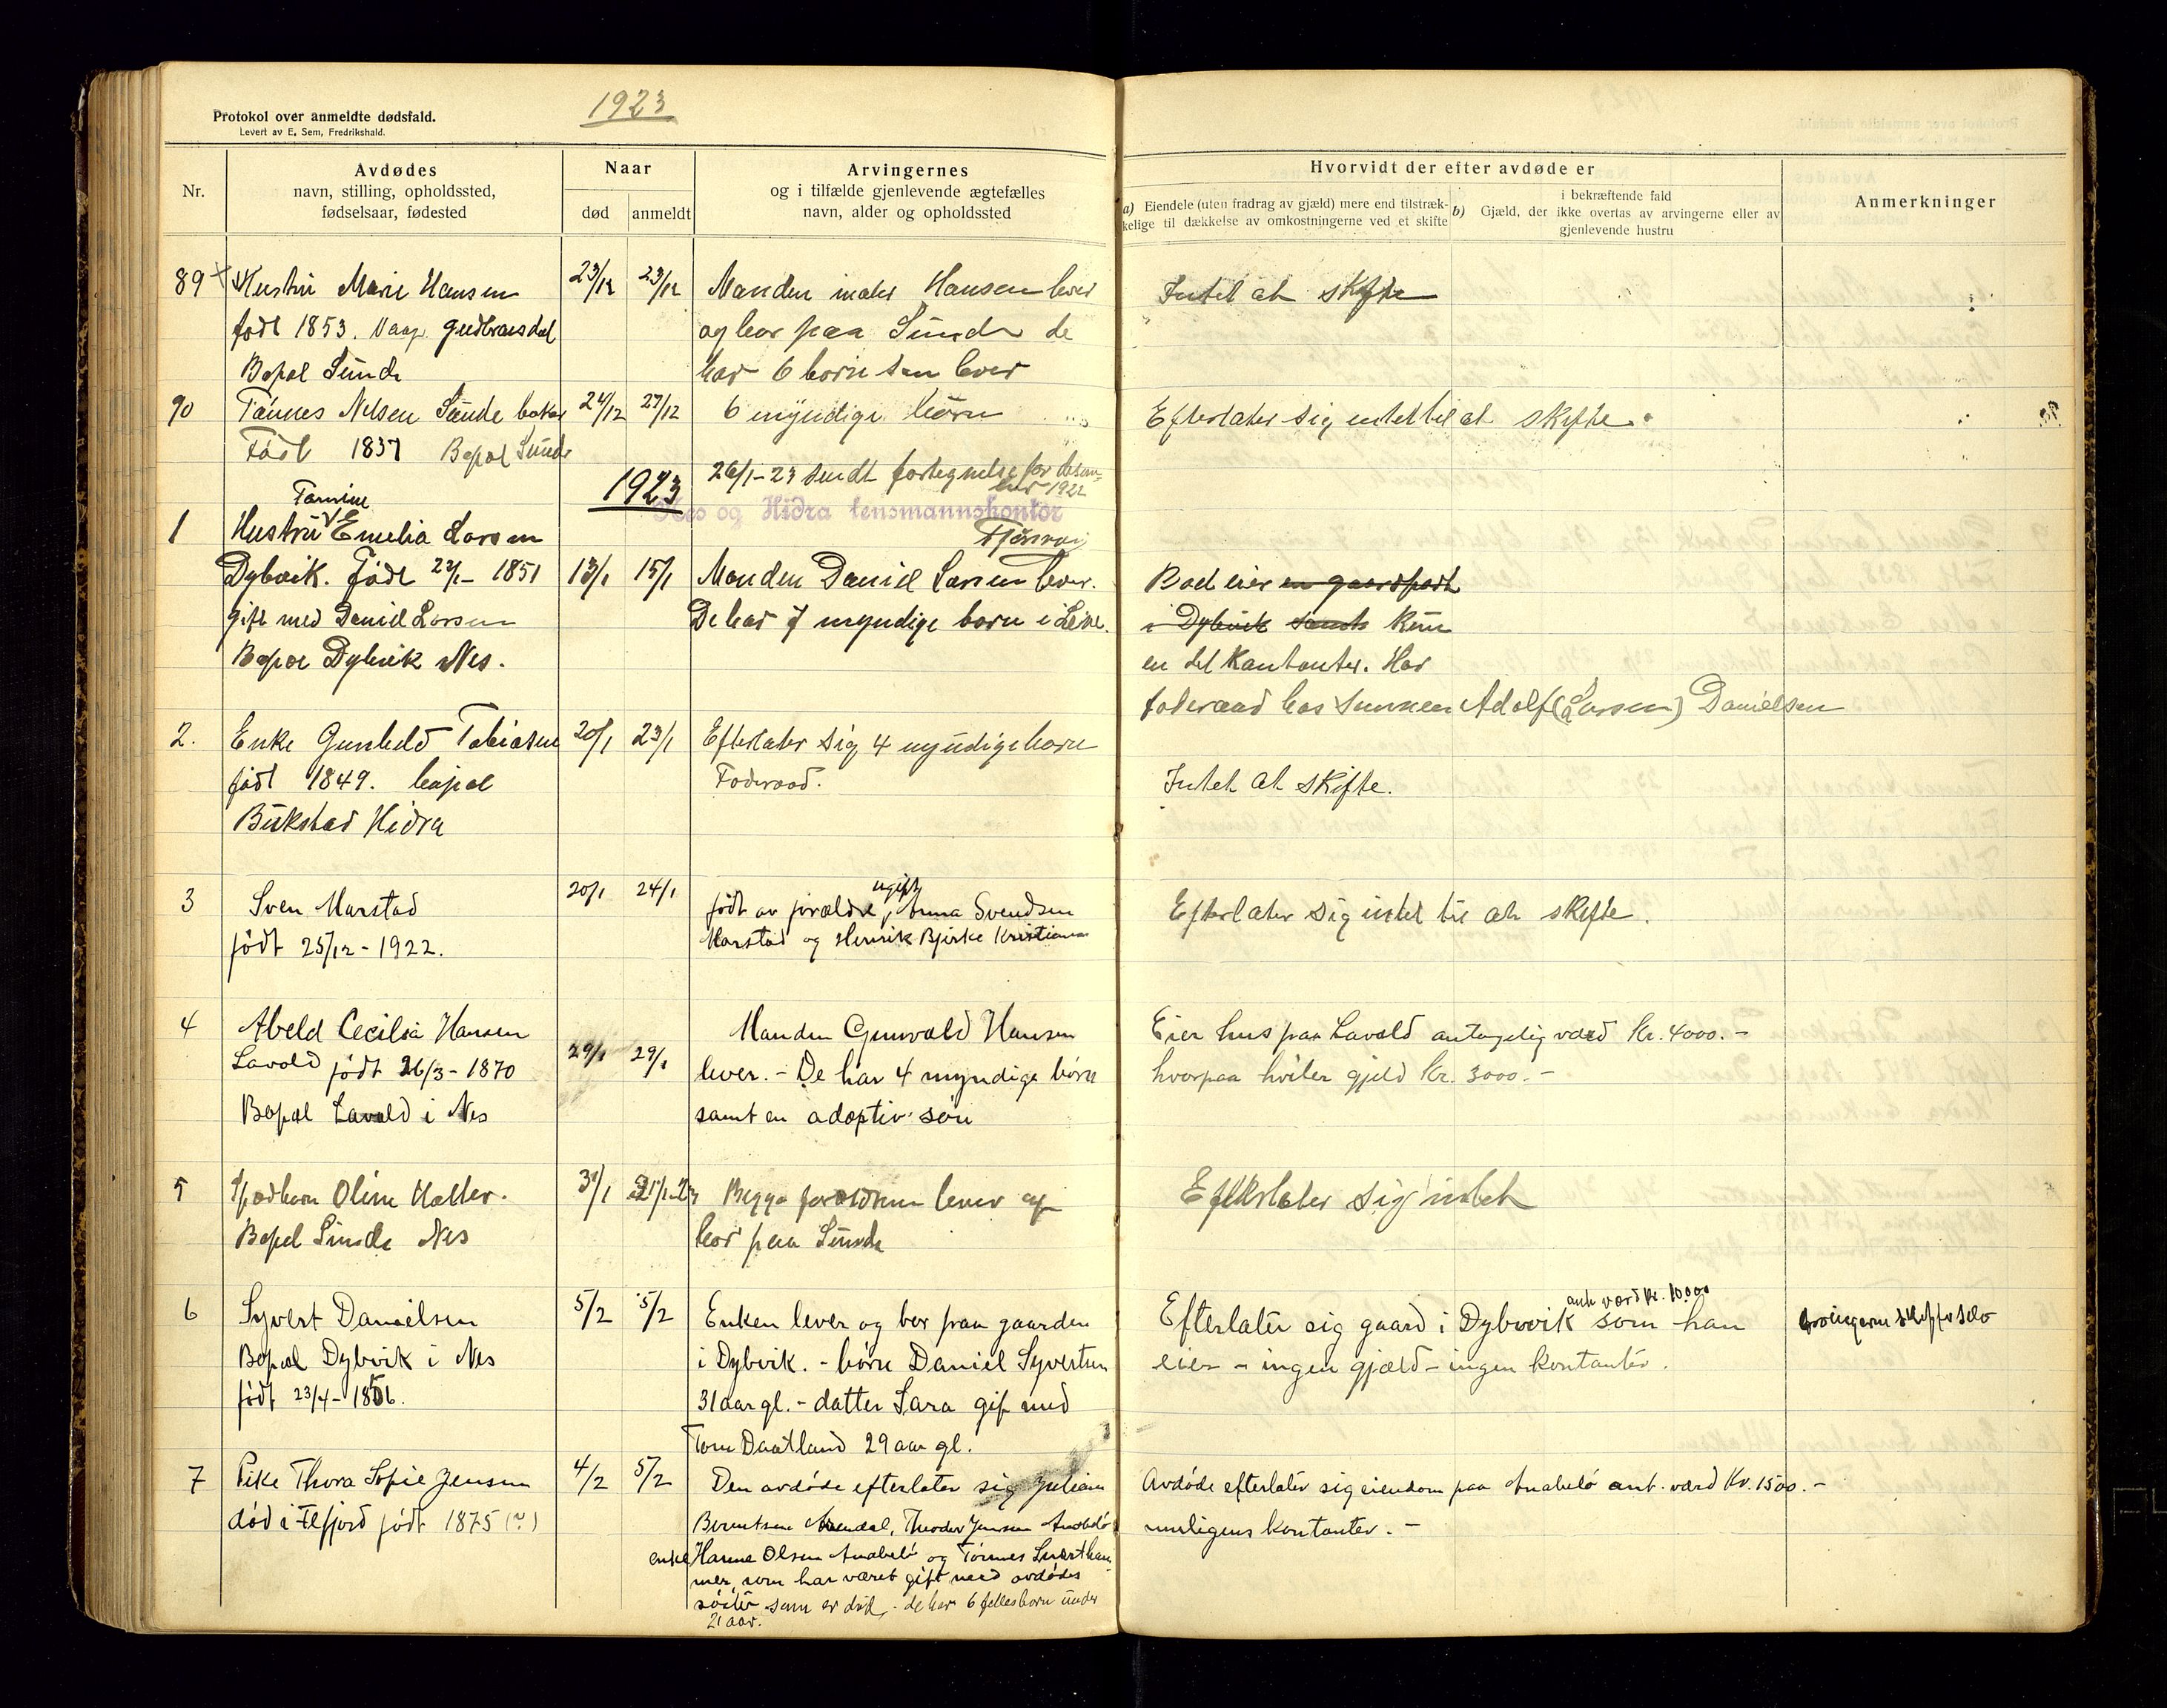 Protokol over anmeldte dødsfald.
Levert av E. Sem, Fredrikshald.
1923
Nr.
Avdødes
navn, stilling, opholdssted,
fødselsaar, fødested
Naar
død
anmeldt
Arvingernes
og i tilfælde gjenlevende ægtefælles
navn, alder og opholdssted
Hvorvidt der efter avdøde er
a) Eiendele (uten fradrag av gjæld) mere end tilstræk-
kelige til dækkelse av omkostningerne ved et skifte
i bekræftende fald
b) Gjæld, der ikke overtas av arvingerne eller av
gjenlevende hustru
Anmerkninger
89 Hustru Marie Hansen
født 1853. Vaage Gudbransdal
Bopæl Sunde
23/12
23/12
Manden maler Hansen lever
og bor paa Sunde de
har 6 børn som lever
Intet at skifte
90
Tønnes Nelsen Sunde
Født 1837 Bopæl Sunde
24/12
27/12
6 myndige børn
Efterlater sig intet til at skifte
26/1-23 sendt fortegnelse for
1922
1923
Nes og Hidra lensmannskontor
1
Tomine
Hustru Emelia Larsen
Dybvik. Født 22/1- 1851
gift med Daniel Larsen
Bopæl Dybvik Nes.
13/1
15/1
Manden Daniel Larsen lever.
De har 7 myndige børn i Live.
Boet eier en gaardpart
i Dybvik samt kun
en del kontanter. Har
foderaad hos sønnen Adolf (Larsen) Danielsen
2.
Enke Gunhild Tobiasen
født 1849. bopæl
Bukstad Hidra
20/1
23/1
Efterlater sig 4 myndige børn
Foderaad.
Intet at skifte.
3
Sven Marstad
født 25/12 - 1922.
20/1
24/1
ugift
født av forældre, Anna Svendsen
Marstad og Henrik Bjerke Kristiania
Efterlater sig intet til at skifte.
4
Abeld Cecilia Hansen
Lavold født 26/3- 1870
Bopæl Lavold i Nes
29/1
29/1
Manden Gunvald Hansen
lever. - De har 4 myndige børn
samt en adoptiv søn
Eier hus paa Lavold antagelig værd Kr. 4000.-
hvorpaa hviler gjeld Kr. 3000.-
5
Spædbarn Oline Haller.
Bopæl Sunde Nes
31/1
Begge forældrene lever og
bor paa Sunde
Efterlater sig intet
6
Syvert Danielsen
Bopæl Dybvik i Nes
født 23/4-1856.
5/2
5/2
Enken lever og bor paa gaarden
i Dybvik. - børn Daniel Syvertsen
31 aar gl. - datter Sara gift med
Tom Daatland 29 aar gl.
ant. værd kr. 10000
Efterlater sig gaard i Dybvik som han
eier - ingen gjæld - ingen kontanter.
Arvingerne skifter selv
7
Pike Thora Sofie Jensen
død i Flefjord født 1875 (?)
4/2
5/2
Den avdøde efterlater sig Juliane
Berentsen Aaendal, Theodor Jensen Anabelø
enke Hanne Olsen Anabelø og Tønnes Svertham-
mer, som har været gift med avdødes
søster som er død. - de har 6 fellesbørn under
21 aar.
Avdøde efterlater sig eiendom paa Anabelø ant. værd Kr. 1500.-
muligens kontanter. -